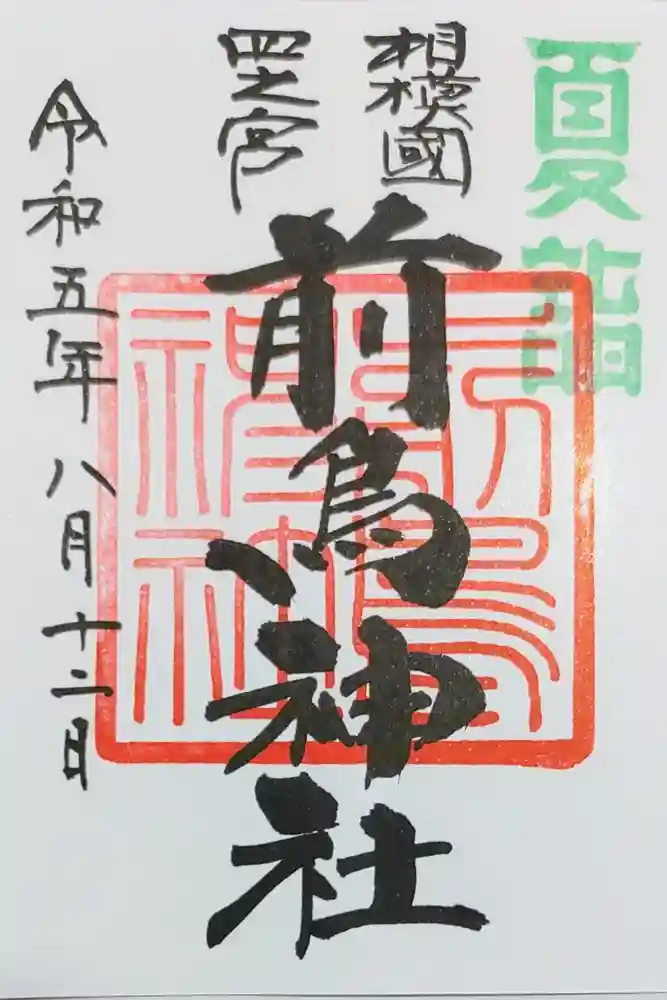 夏詣
相模國
四之宮
前鳥神社
前鳥神社
令和五年八月十二日